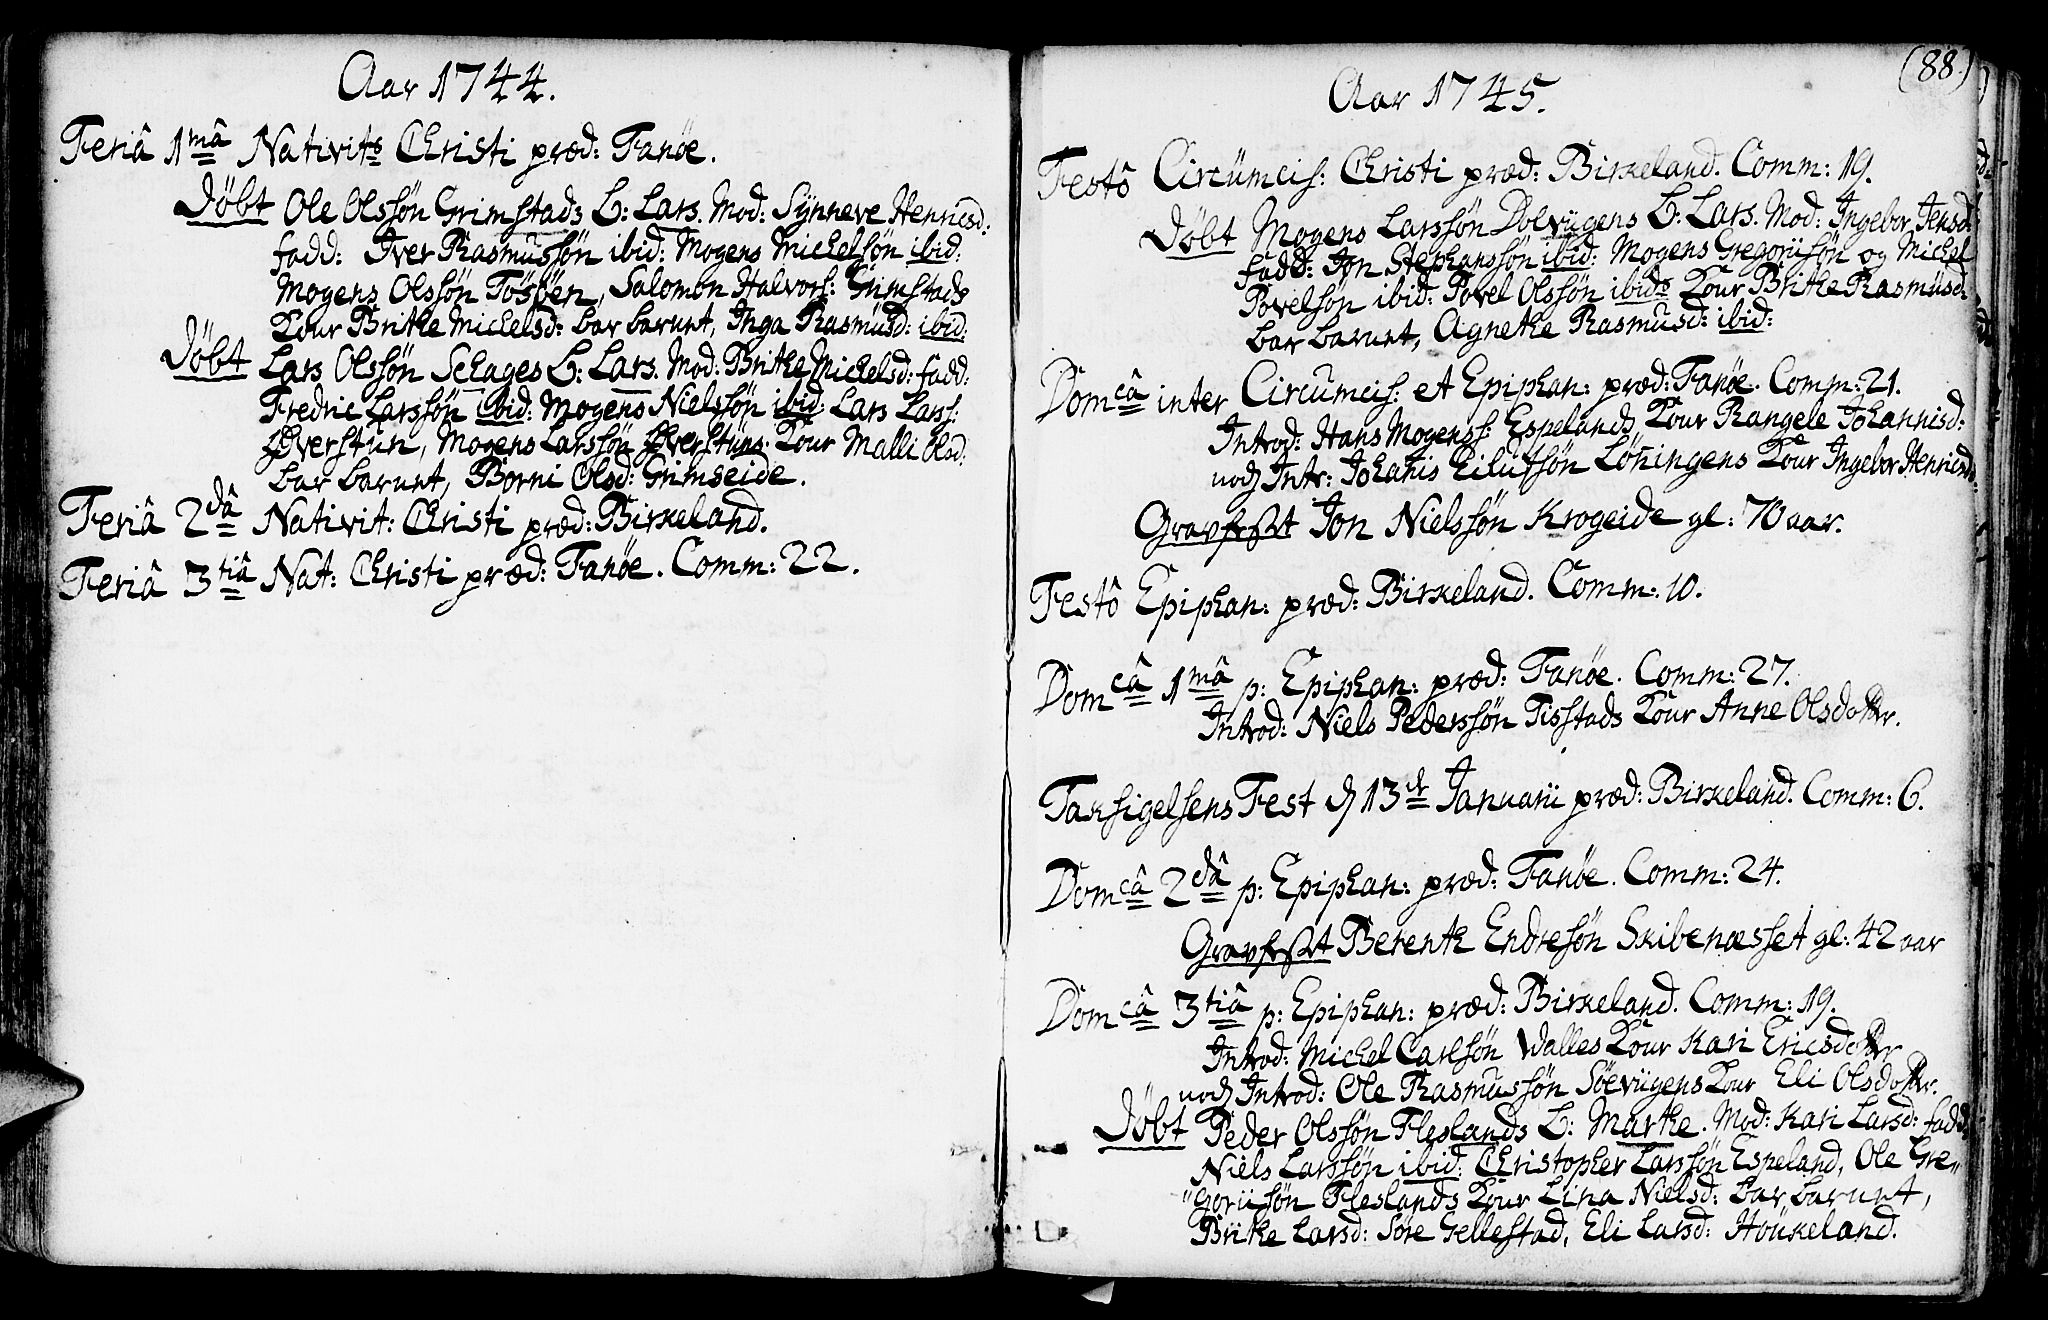 Aar 1744.
Feriâ 1mâ Nativits Christi præd: Fanöe.
Döbt Ole Olssön Grimstads B: Lars. Mod: Synneve Henricsd:
fadd: Iver Rasmussön ibid: Mogens Michelsön ibid:
Mogens Olssön Tösöen, Salomon Halvors: Grimstads
Kour Brithe Michelsd: bar barnet, Inga Rasmusd: ibid:
Döbt Lars Olssön Schages B: Lars. Mod: Brithe Michelsd: fadd:
Fredric Larssön ibid: Mogens Nielssön ibid: Lars Larss:
Överstun, Mogens Larssön Överstuns Kour Malli Olsd:
bar barnet, Borni Olsd: Grimseide.
Feriâ 2dâ Nativit: Christi præd: Birkeland.
Feriâ 3tiâ Nat: Christi præd: Fanöe. Comm: 22.
(88)
Aar 1745.
Festô Circumcis: Christi præd: Birkeland. Comm: 19.
Döbt Mogens Larssön Dolvigens B: Lars. Mod: Ingebor Jensd:
fadd: Jon Stephanssön ibid: Mogens Gregoriisön og Michel
Povelsön ibid: Povel Olssön ibids Kour Brithe Rasmusd:
bar barnet, Agnethe Rasmusd: ibid:
Domcâ inter Circumcis: et Epiphan: præd: Fanöe. Comm: 21.
Introd: Hans Mogenss: Espelands Kour Rangele Johannisd:
noch Intr: Johanis Eilufsön Löningens Kour Ingebor Henricsd:
Gravfest Jon Nielssön Krogeide gl: 70 aar.
Festô Epiphan: præd: Birkeland. Comm: 10.
Domcâ 1mâ p: Epiphan: præd: Fanöe. Comm: 27.
Introd: Niels Pederssön Tisstads Kour Anne Olsdotter.
Taksigelsens Fest d 13de Januarii præd: Birkeland. Comm: 6.
Domcâ 2dâ p: Epiphan: præd: Fanöe. Comm: 24.
Gravfest Berenth Endresön Skibenæsset gl: 42 aar
Domcâ 3tiâ p: Epiphan: præd: Birkeland. Comm: 19.
Introd: Michel Carlsön Walles Kour Kari Ericsdotter
noch Introd: Ole Rasmussön Söevigens Kour Eli Olsdotter.
Döbt Peder Olssön Fleslands B: Marthe. Mod: Kari Larsd: fadd:
Niels Larssön ibid: Christopher Larssön Espeland, Ole Gre„
„goriisön Fleslands Kour Lina Nielsd: bar barnet,
Brithe Larsd: Söre Gellestad, Eli Larsd: Houkeland.